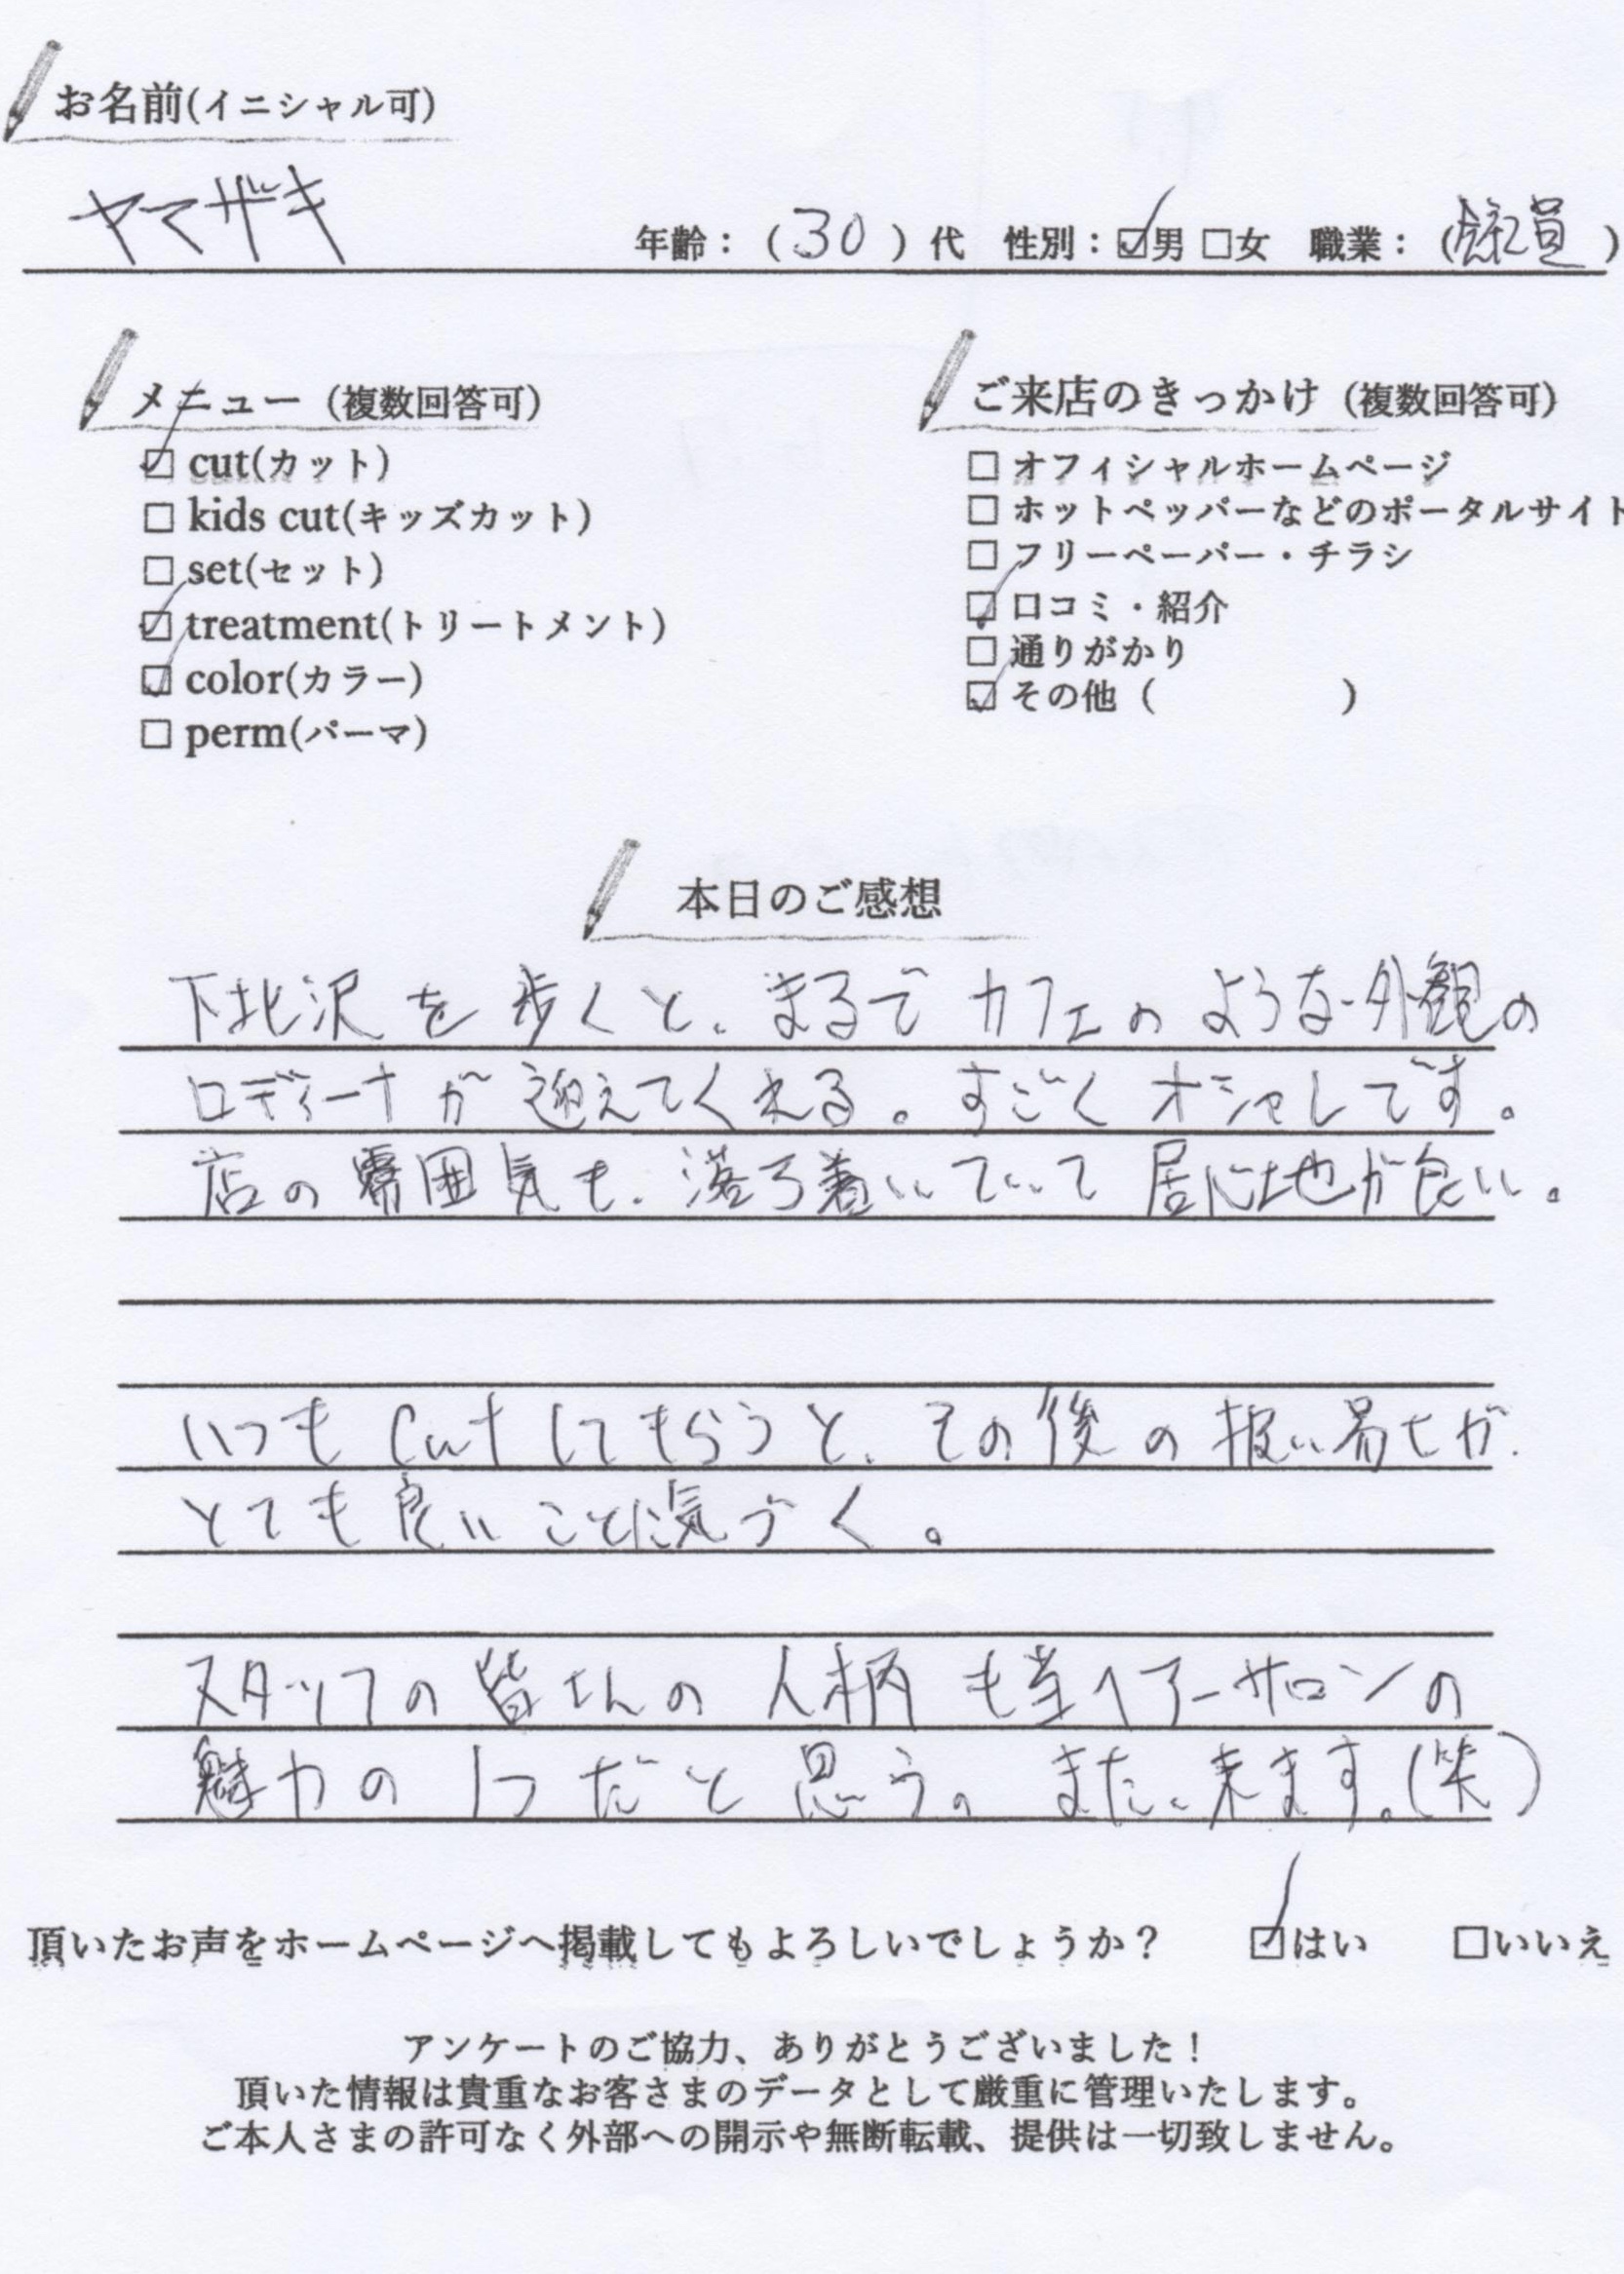 お名前(イニシャル可)
ヤマザキ
年齢：（30）代 性別：☑男 □女 職業：（　員）
メニュー（複数回答可）
☑ cut(カット)
□ kids cut(キッズカット)
□ set(セット)
☑ treatment(トリートメント)
☑ color(カラー)
□ perm(パーマ)
ご来店のきっかけ（複数回答可）
□ オフィシャルホームページ
□ ホットペッパーなどのポータルサイト
□ フリーペーパー・チラシ
☑ 口コミ・紹介
□ 通りがかり
☑ その他（　　　　　）
本日のご感想
下北沢を歩くと、まるでカフェのような外観の
ロディーナが迎えてくれる。すごくオシャレです。
店の雰囲気も、落ち着いていて居心地が良い。
いつもcutしてもらうと、その後の扱い易さが
とても良いことに気づく。
スタッフの皆さんの人柄も当ヘアーサロンの
魅力の1つだと思う。また、来ます。(笑)
頂いたお声をホームページへ掲載してもよろしいでしょうか？ ☑はい □いいえ
アンケートのご協力、ありがとうございました！
頂いた情報は貴重なお客さまのデータとして厳重に管理いたします。
ご本人さまの許可なく外部への開示や無断転載、提供は一切致しません。